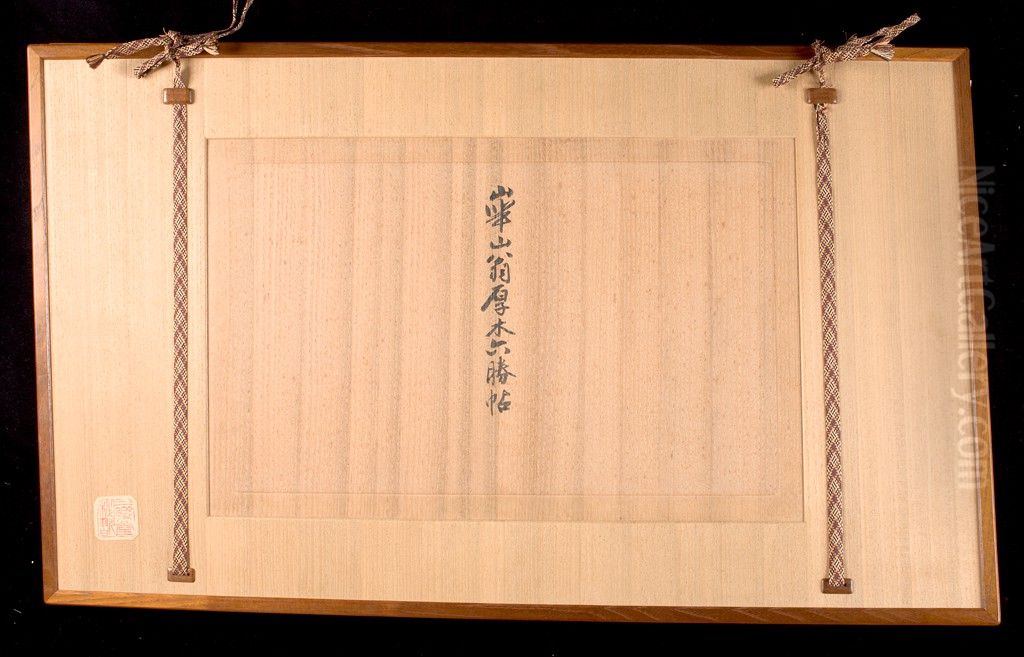 崋山翁厚木六勝帖
NiceArtGallery.com